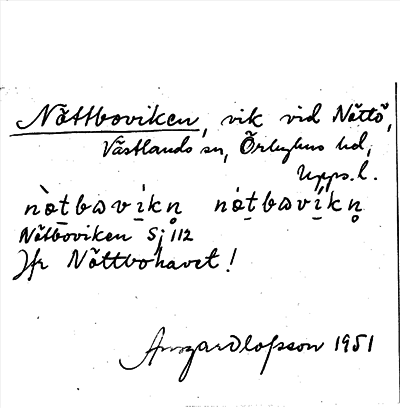 Nöttboviken, vik vid Nöttö,
Västlands sn, Örbyhus hd,
Upps. l.
nòtbωvíkn̥ nòtbωvíkn̥
Nötboviken Sj 112
Jfr Nöttbohavet!
Olofsson 1951